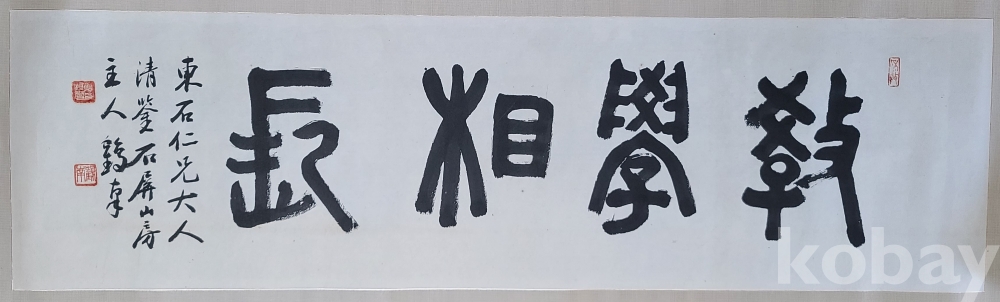 敎學相長
東石仁兄大人
清鉴石屏山房
主人
kobay